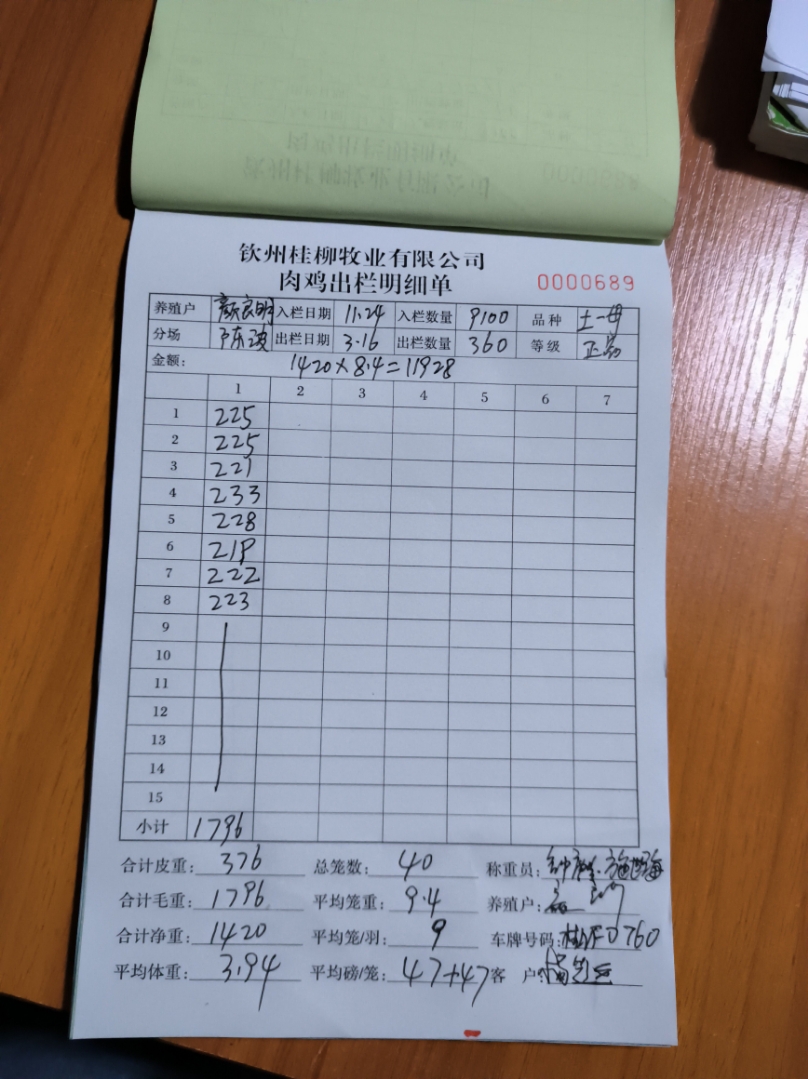 钦州桂柳牧业有限公司
肉鸡出栏明细单 0000689
养殖户 颜良明 入栏日期 11.24 入栏数量 9100 品种 土一母
分场 陈波 出栏日期 3.16 出栏数量 360 等级 正品
金额: 1420×8.4=11928
1 2 3 4 5 6 7
1 225
2 225
3 221
4 233
5 228
6 218
7 222
8 223
9
10
11
12
13
14
15
小计 1796
合计皮重: 376 总笼数: 40 称重员:
合计毛重: 1796 平均笼重: 9.4 养殖户:
合计净重: 1420 平均笼/羽: 9 车牌号码: 0760
平均体重: 3.94 平均磅/笼: 47+47 客 户: